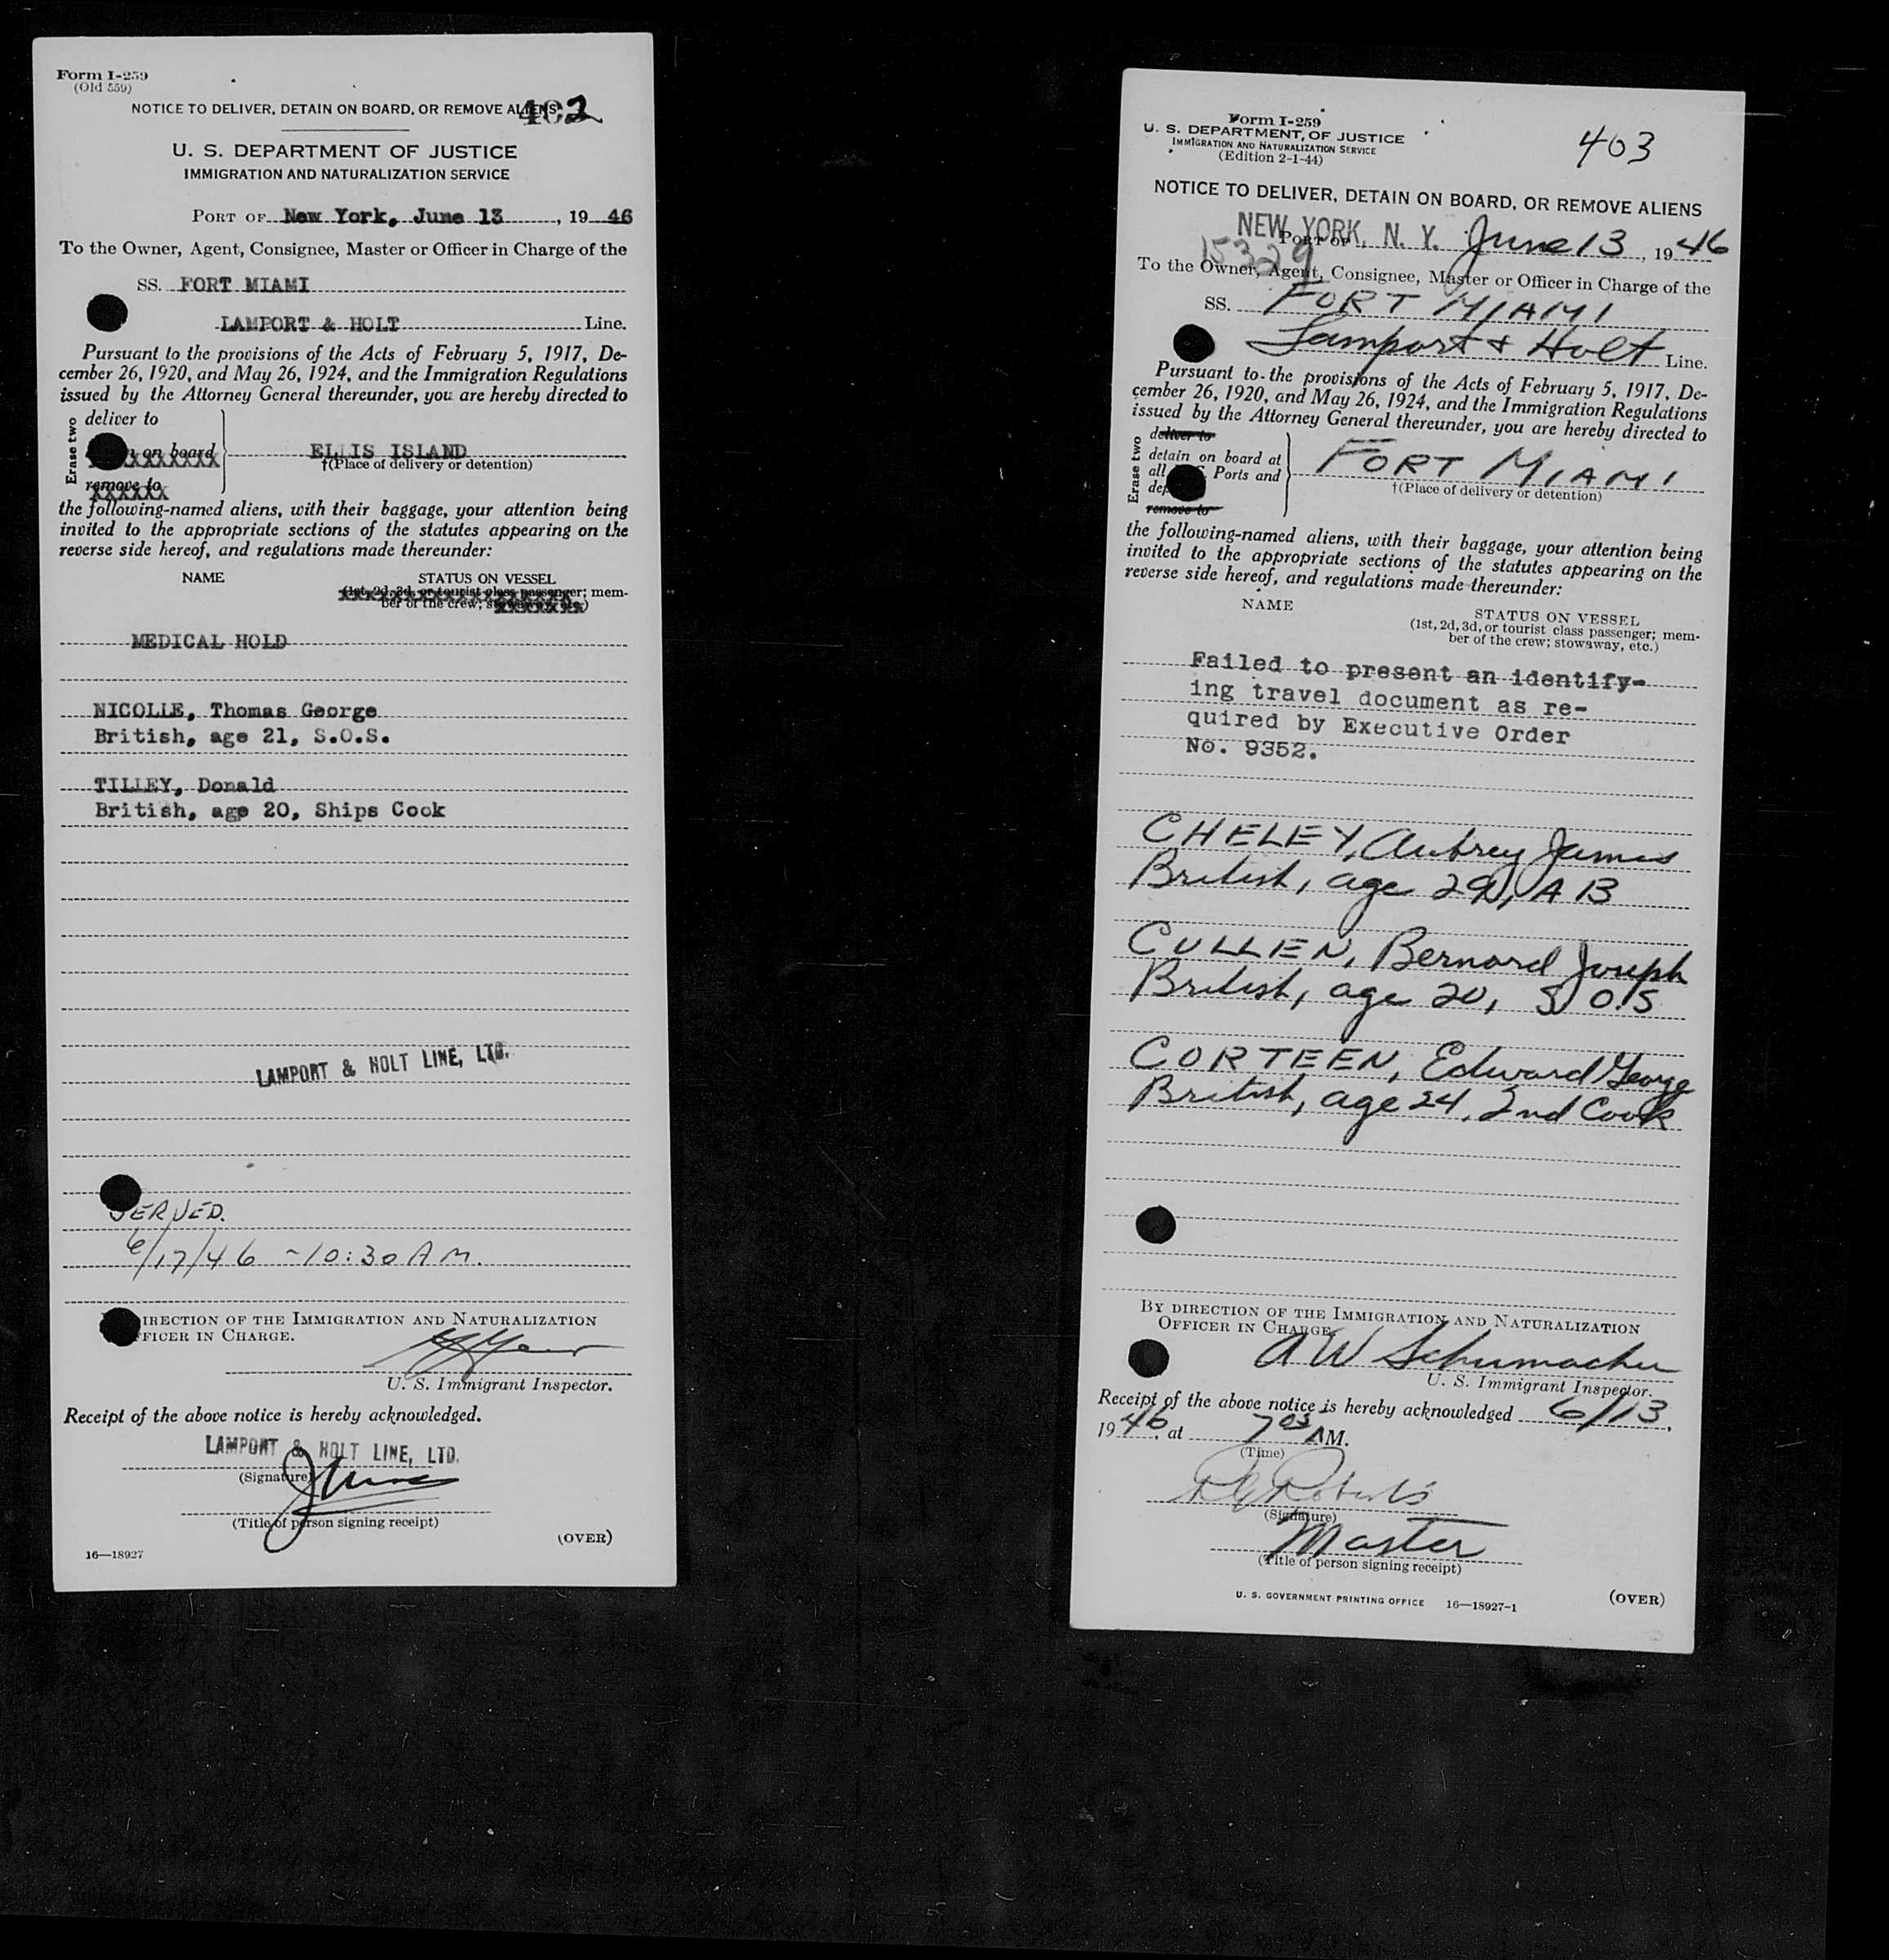 Form I-259
(Old 559)
402
NOTICE TO DELIVER, DETAIN ON BOARD, OR REMOVE ALIENS
U. S. DEPARTMENT OF JUSTICE
IMMIGRATION AND NATURALIZATION SERVICE
PORT OF New York, June 13, 19 46
To the Owner, Agent, Consignee, Master or Officer in Charge of the
SS. FORT MIAMI
LAMPORT & HOLT Line.
Pursuant to the provisions of the Acts of February 5, 1917, De-
cember 26, 1920, and May 26, 1924, and the Immigration Regulations
issued by the Attorney General thereunder, you are hereby directed to
Erase two
deliver to
on board
remove to
ELLIS ISLAND
†(Place of delivery or detention)
the following-named aliens, with their baggage, your attention being
invited to the appropriate sections of the statutes appearing on the
reverse side hereof, and regulations made thereunder:
NAME STATUS ON VESSEL
(1st, 2d, 3d, or tourist class passenger; mem-
ber of the crew; stowaway, etc.)
MEDICAL HOLD
NICOLLE, Thomas George
British, age 21, S.O.S.
TILLEY, Donald
British, age 20, Ships Cook
LAMPORT & HOLT LINE, LTD.
SERVED.
6/17/46 - 10:30 AM.
DIRECTION OF THE IMMIGRATION AND NATURALIZATION
OFFICER IN CHARGE.
U. S. Immigrant Inspector.
Receipt of the above notice is hereby acknowledged.
LAMPORT & HOLT LINE, LTD.
(Signature)
(Title of person signing receipt)
(OVER)
16—18927
Form I-259
U. S. DEPARTMENT OF JUSTICE
IMMIGRATION AND NATURALIZATION SERVICE
(Edition 2-1-44)
403
NOTICE TO DELIVER, DETAIN ON BOARD, OR REMOVE ALIENS
NEW YORK, N. Y. June 13, 19 46
PORT OF
15329
To the Owner, Agent, Consignee, Master or Officer in Charge of the
SS. FORT MIAMI
Lamport & Holt Line.
Pursuant to the provisions of the Acts of February 5, 1917, De-
cember 26, 1920, and May 26, 1924, and the Immigration Regulations
issued by the Attorney General thereunder, you are hereby directed to
Erase two
deliver to
detain on board at
all Ports and
remove to
FORT MIAMI
†(Place of delivery or detention)
the following-named aliens, with their baggage, your attention being
invited to the appropriate sections of the statutes appearing on the
reverse side hereof, and regulations made thereunder:
NAME STATUS ON VESSEL
(1st, 2d, 3d, or tourist class passenger; mem-
ber of the crew; stowaway, etc.)
Failed to present an identify-
ing travel document as re-
quired by Executive Order
No. 9352.
CHELEY, Aubrey James
British, age 29, A B
CULLEN, Bernard Joseph
British, age 20, S.O.S
CORTEEN, Edward George
British, age 24, 2nd Cook
BY DIRECTION OF THE IMMIGRATION AND NATURALIZATION
OFFICER IN CHARGE.
A W Schumacher
U. S. Immigrant Inspector.
Receipt of the above notice is hereby acknowledged 6/13,
19 46, at 7 05 A M.
(Time)
Roberts
(Signature)
Master
(Title of person signing receipt)
U. S. GOVERNMENT PRINTING OFFICE 16—18927-1
(OVER)